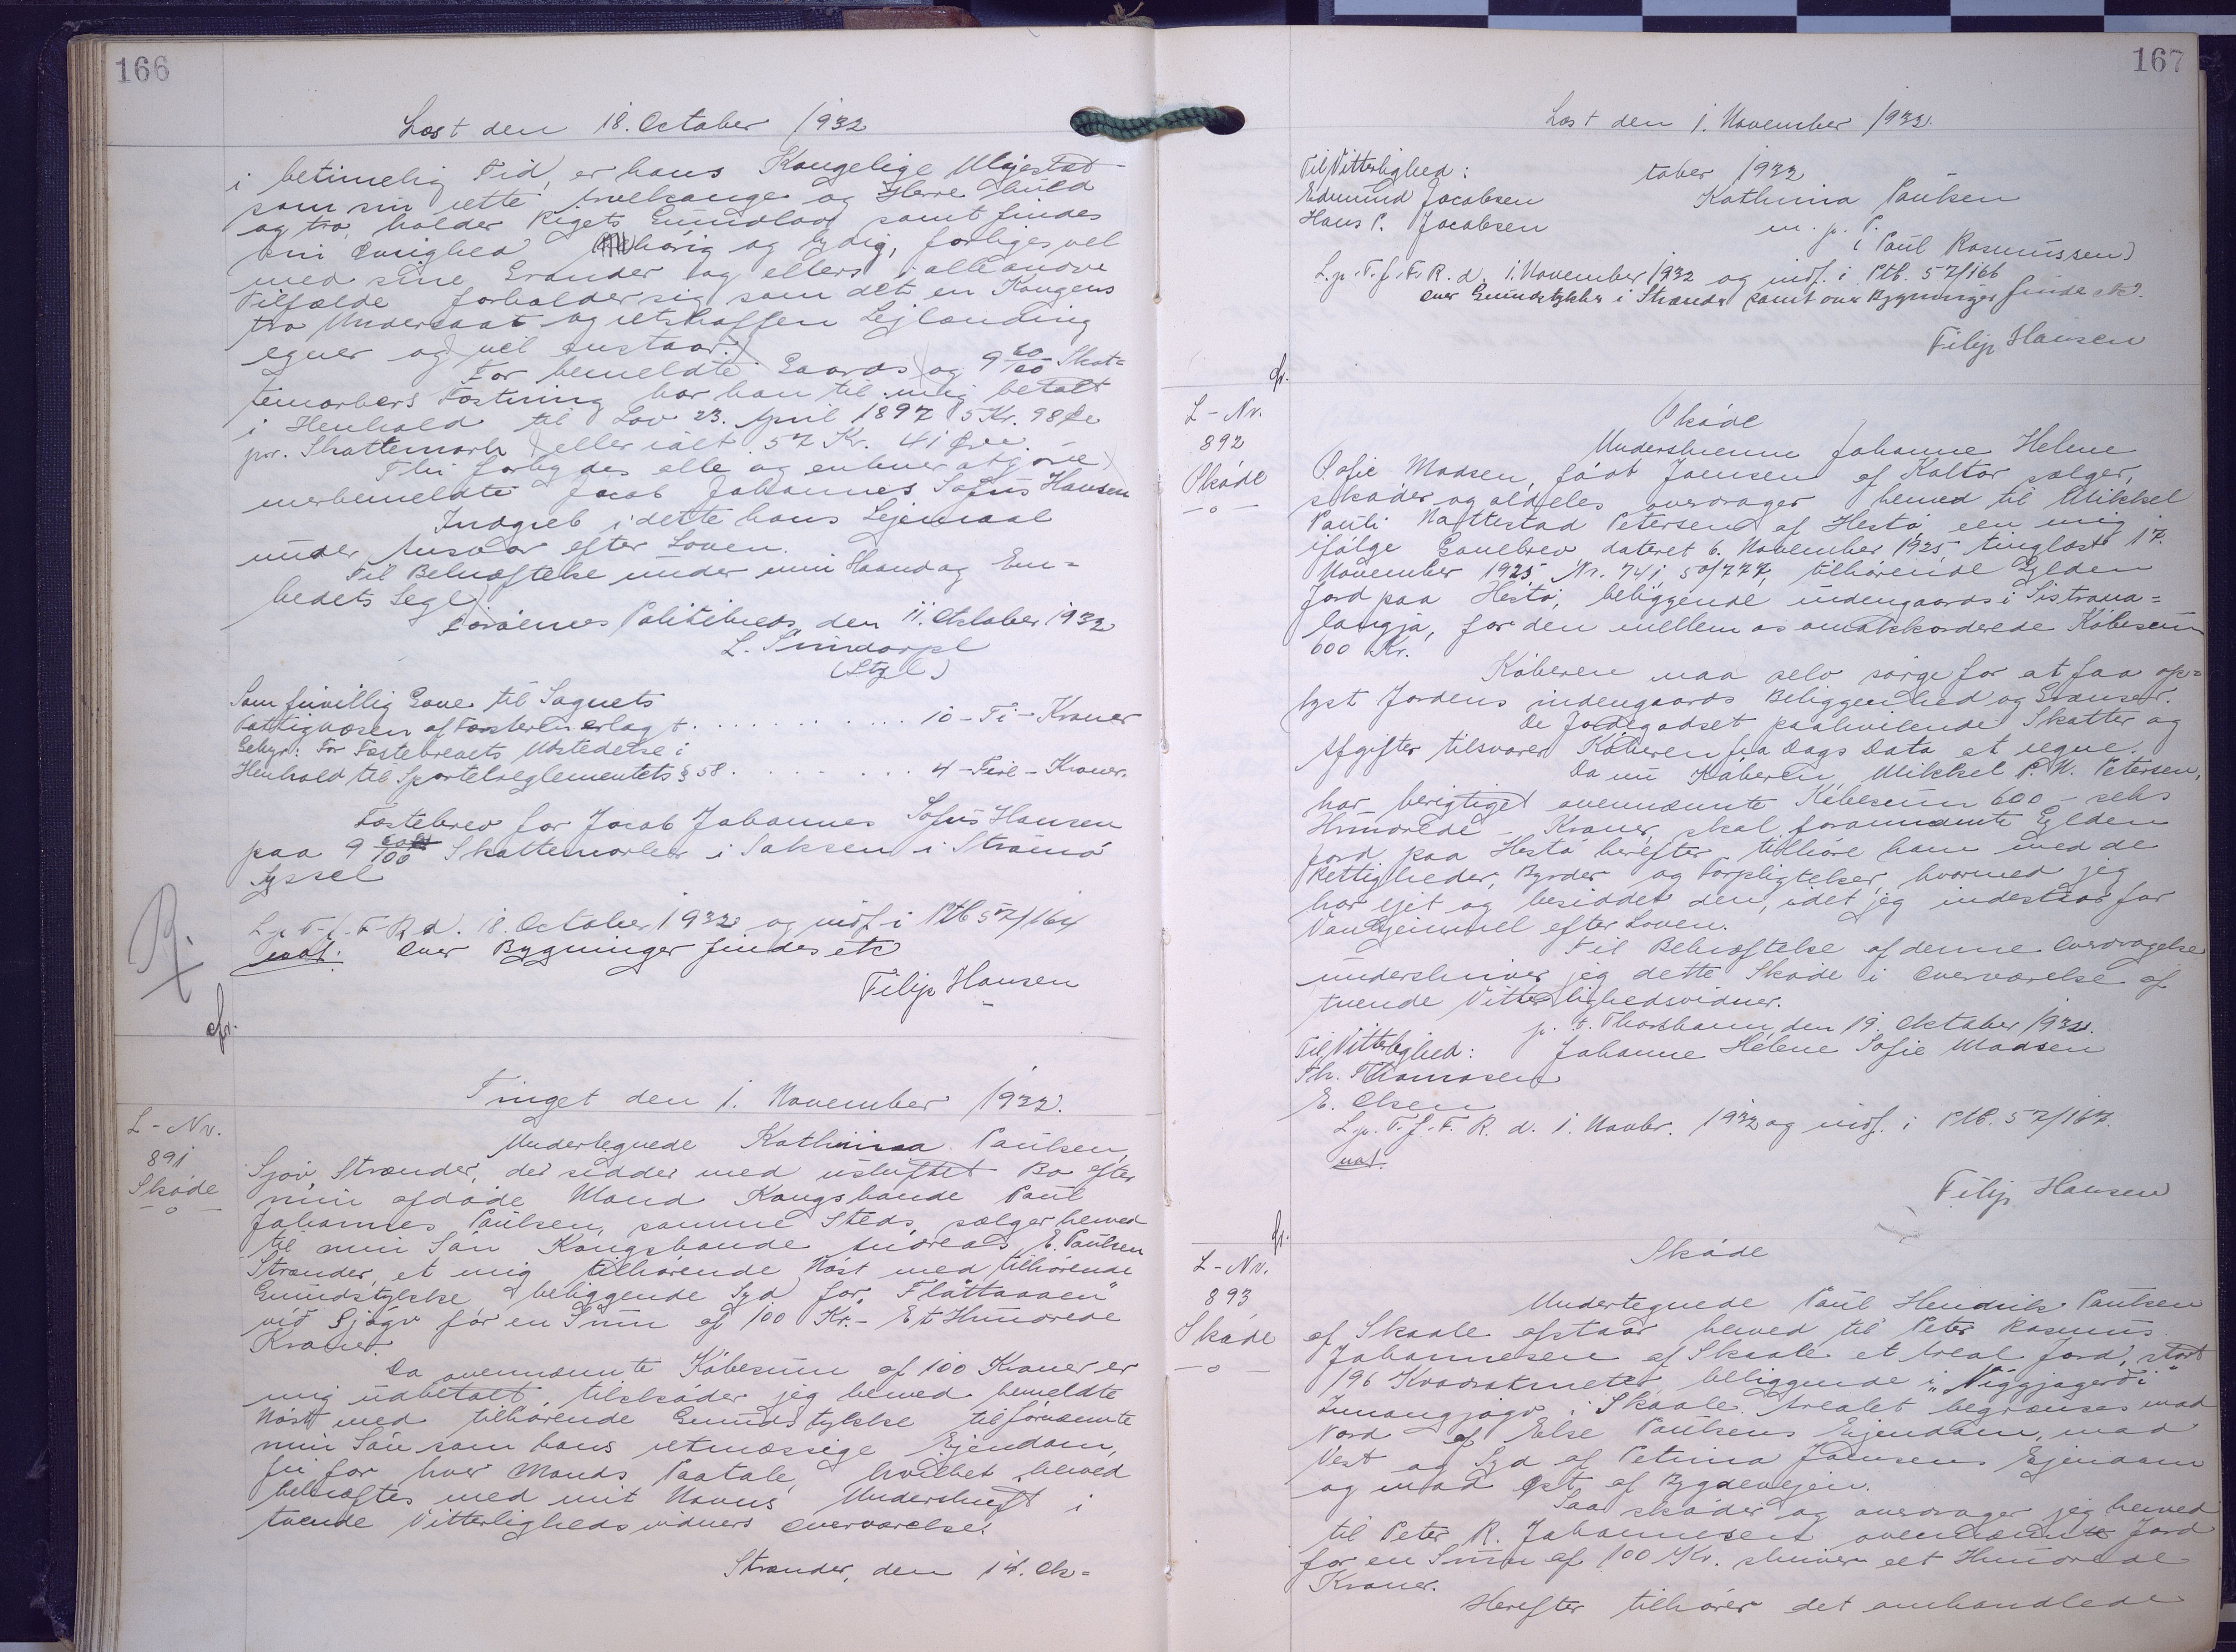 166
Læst den 18. October 1932
i betimelig Tid, er hans Kongelige Majestæt
som sin rette Arvekonge og Herre huld
og tro, holder Rigets Grundlov samt findes
sin Øvrighed hørig og lydig, forliges vel
med sine Grander og ellers i alle andre
Tilfælde forholder sig som det en Kongens
tro Undersaat og retskaffen Lejlænding
egner og vel anstaar.
For bemeldte Gaards og 9 60/100 Skat-
temarkers Fæstning har han til mig betalt
i Henhold til Lov 23. April 1897 5 Kr. 98 Øre
pr. Skattemark eller ialt 57 Kr. 41 Øre
Thi forbydes alle og enhver at gøre
merbemeldte Jacob Johannes Sofus Hansen
Indgreb i dette hans Lejemaal
under Ansvar efter Loven.
Til Bekræftelse under min Haand og Em-
bedets Segl
Færøernes Politikreds, den 11. Oktober 1932
L.
(Sgl)
Som frivillig Gave til Sognets
Fattigvæsen af Fæsteren erlagt. . . . . . . . . . . . 10 - Ti - Kroner
Gebyr: For Fæstebrevets Udstedelse i
Henhold til Sportelreglementets § 58. . . . . . . . . 4 - Fire - Kroner.
Fæstebrev for Jacob Johannes Sofus Hansen
paa 9 60/100 Skattemarker i Saksen i Strømø
Syssel
L. p. T. f. F. R. d. 18. October 1932 og indf. i Ptb 57/164
Over Bygninger findes etc
Filip Hansen
cfr.
Tinget den 1. November 1932.
L-Nr.
891
Skøde
-o-
Undertegnede Kathrina Paulsen,
Sjóv, Strænder, der sidder med uskiftet Bo efter
min afdøde Mand Kongsbonde Paul
Johannes Paulsen, samme Steds, sælger herved
til min Søn Kongsbonde Andreas E. Paulsen
Strænder, et mig tilhørende Nøst med tilhørende
Grundstykke beliggende Syd for "Fløttaaaen"
við Sjógv for en Sum af 100 Kr. - Et Hundrede
Kroner.
Da ovennævnte Købesum af 100 Kroner er
mig udbetalt, tilskøder jeg herved bemeldte
Nøst med tilhørende Grundstykke til førnævnte
min Søn som hans retmæssige Ejendom,
fri for hver Mands Paatale, hvilket herved
bekræftes med mit Navns Underskrift i
tvende Vitterlighedsvidners Overværelse.
Strænder, den 14. Ok-
167
Læst den 1. November 1932.
Til Vitterlighed: tober 1932
Edmund Jacobsen Kathrina Paulsen
Hans P. Jacobsen m. p. P.
(Paul Rasmussen)
L. p. T. f. F. R. d. 1. November 1932 og indf. i Ptb. 57/166
Over Grundstykker i Strænder samt over Bygninger findes etc.
Filip Hansen
cfr.
L-Nr.
892
Skøde
-o-
Skøde
Underskrevne Johanne Helene
Sofie Madsen, født Joensen af Koltor sælger,
skøder og aldeles overdrager herved til Mikkel
Pauli Nattestad Petersen af Hestø, een mig
ifølge Gavebrev dateret 6. November 1925, tinglæst 17.
November 1925 Nr. 741 50/777, tilhørende Gylden
Jord paa Hestø, beliggende indengaards i Sistrama-
langja, for den mellem os omakkorderede Købesum
600 Kr.
Køberen maa selv sørge for at faa op-
lyst Jordens indengaards Beliggenhed og Grænser.
De Jordegodset paahvilende Skatter og
Afgifter tilsvarer Køberen fra Dags Dato at regne.
Da nu Køberen, Mikkel P. N. Petersen,
har berigtiget ovennævnte Købesum 600 - seks
Hundrede - Kroner, skal forannævnte Gylden
Jord paa Hestø herefter tilhøre ham med de
Rettigheder, Byrder og Forpligtelser, hvormed jeg
har ejet og besiddet den, idet jeg indestaar for
Vanhjemmel efter Loven.
Til Bekræftelse af denne Overdragelse
underskriver jeg dette Skøde i Overværelse af
tvende Vitterlighedsvidner.
p. t. Thorshavn, den 19. Oktober 1932.
Til Vitterlighed: Johanne Helene Sofie Madsen
Th. Thomasen
E. Olsen
L. p. T. f. F. R. d. 1. Novbr. 1932 og indf. i Ptb. 57/167.
Filip Hansen
cfr.
L-Nr.
893
Skøde
-o-
Skøde
Undertegnede Paul Hendrik Paulsen
af Skaale afstaar herved til Peter Rasmus
Johannesen af Skaale et Areal Jord, stort
196 Kvadratmeter, beliggende i "Niggjagerði"
Innangjógv i Skaale. Arealet begrænses mod
Nord af Else Paulsens Ejendom, mod
Vest og Syd af Petrina Joensens Ejendom
og mod Øst af Bygdevejen.
Saa skøder og overdrager jeg herved
til Peter R. Johannesen ovennævnte Jord
for en Sum af 100 Kr. skriver eet Hundrede
Kroner.
Herefter tilhører det omhandlede